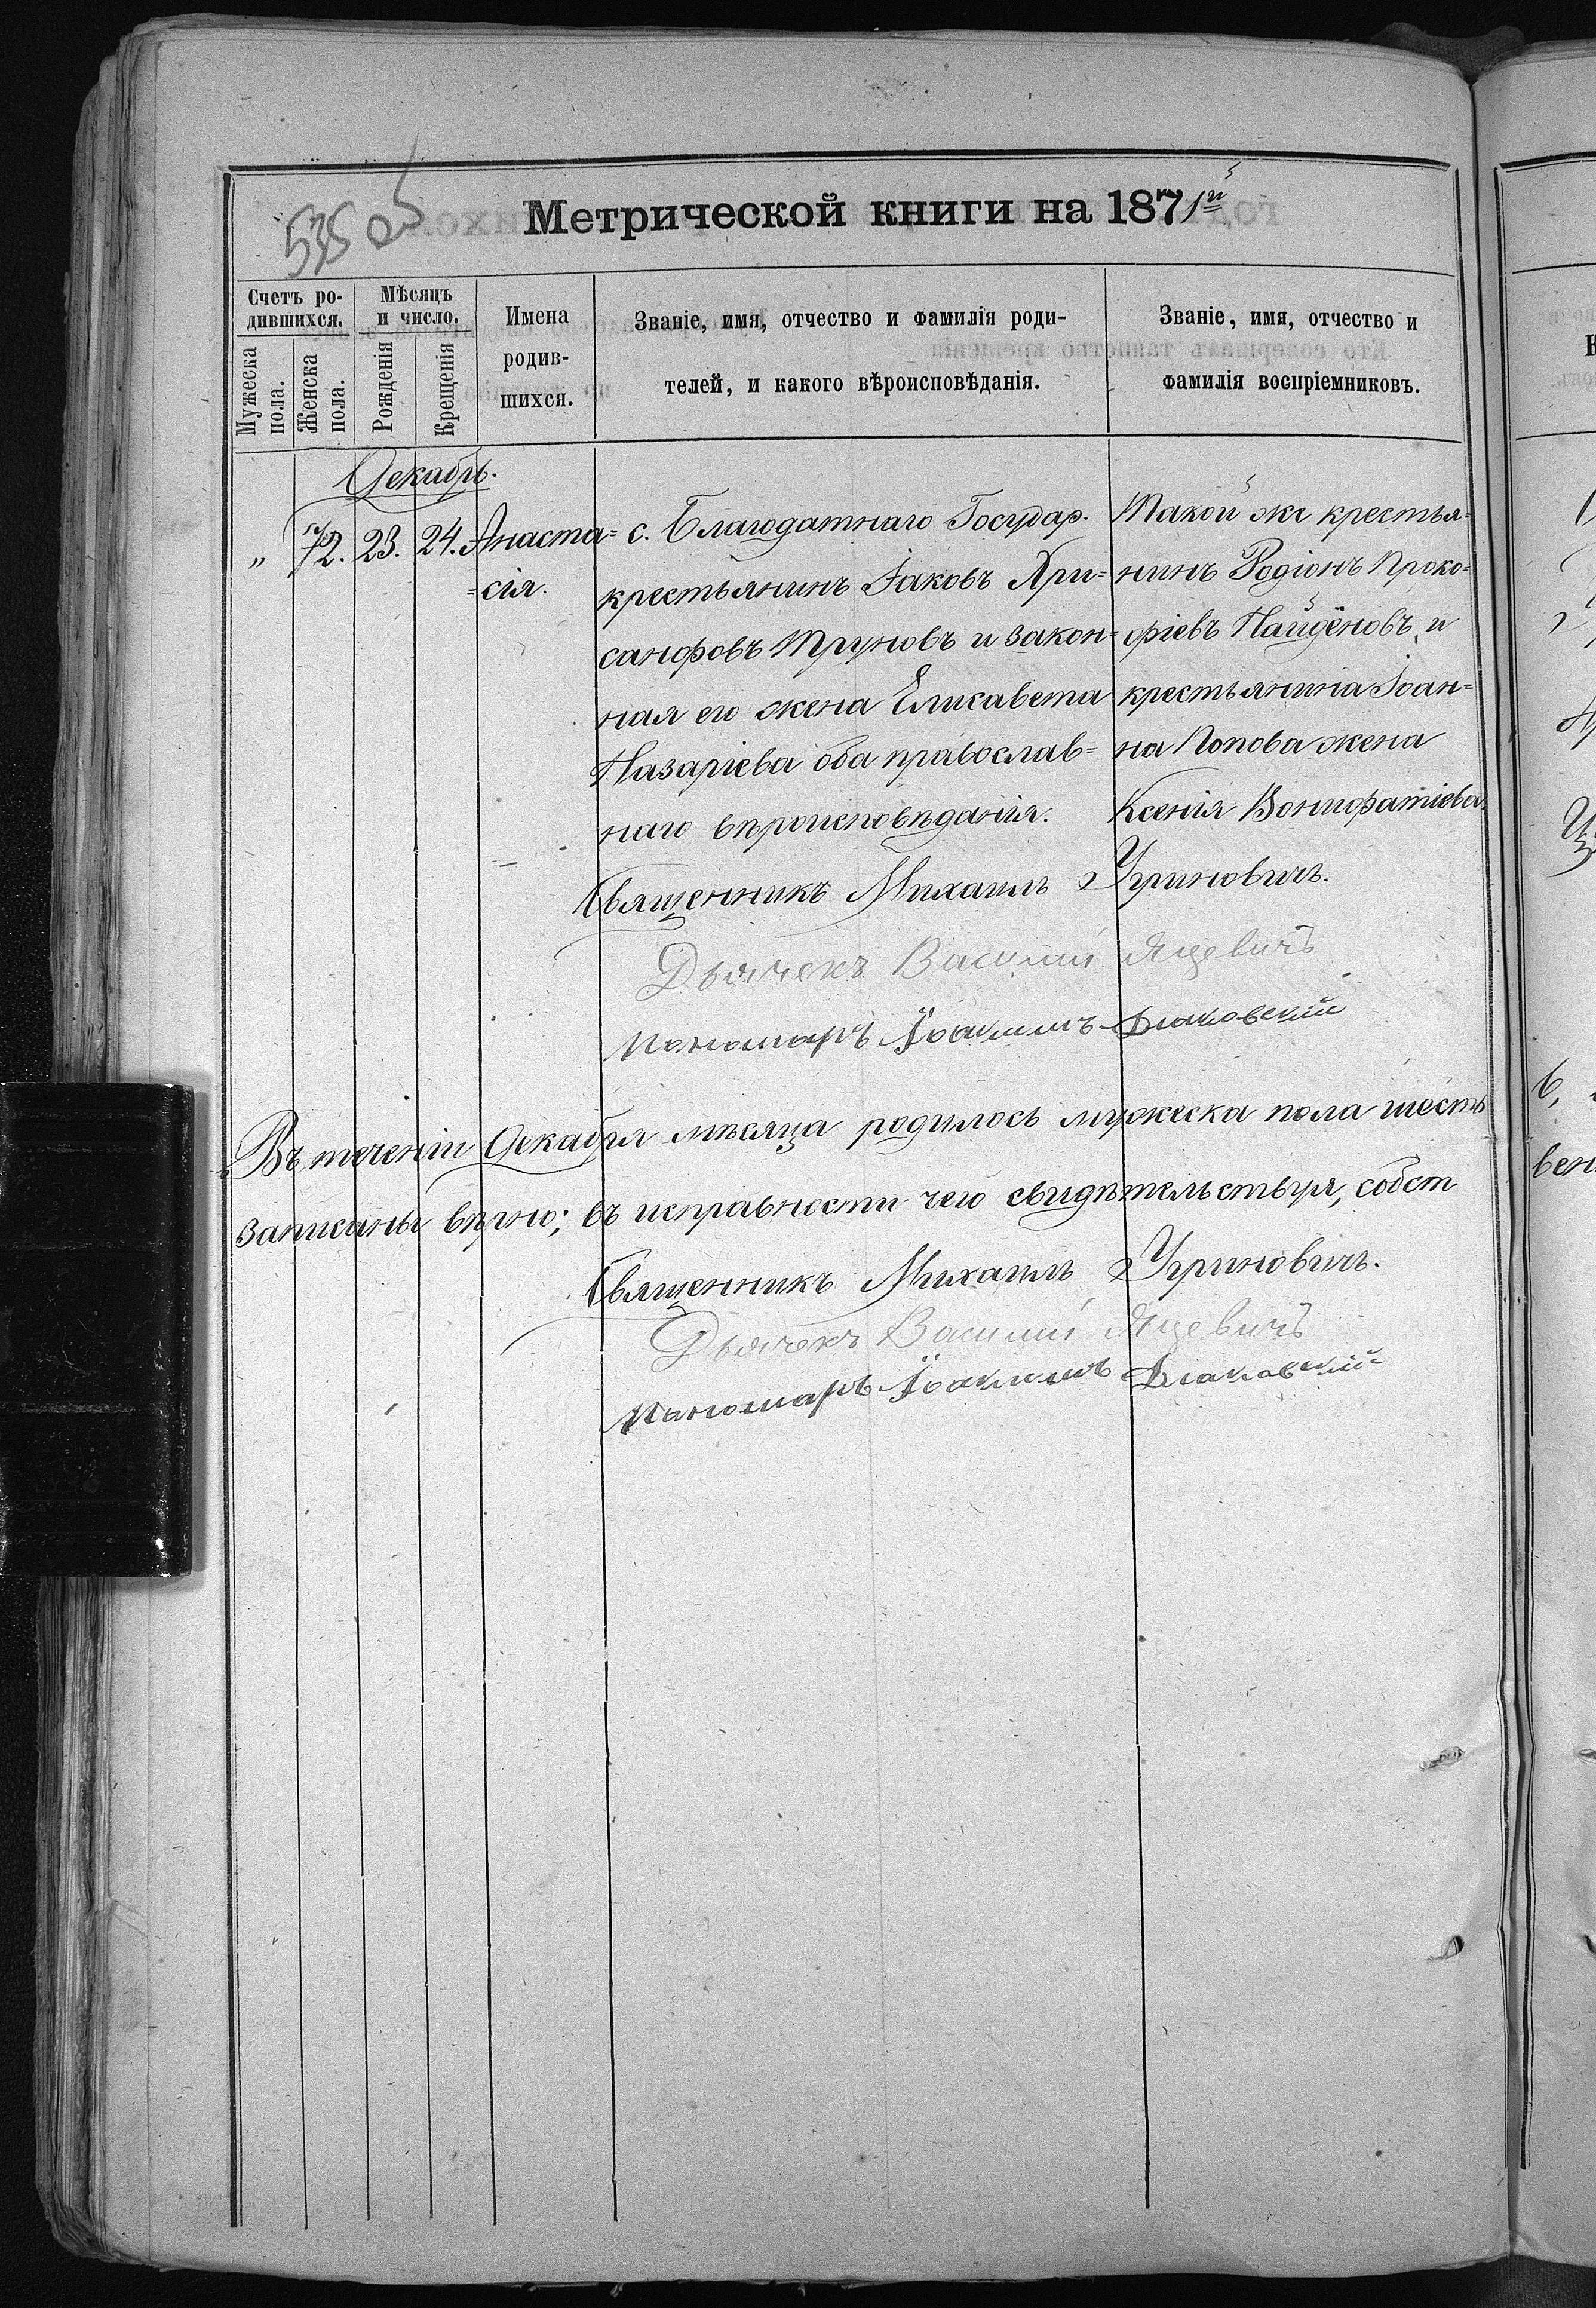 535 об
Метрической книги на 1871й
Счетъ родившихся.
Мѣсяцъ и число.
Мужеска пола.
Женска пола.
Рожденія
Крещенія
Имена родив-
шихся.
Званіе, имя, отчество и фамилія роди-
телей, и какого вѣроисповѣданія.
Званіе, имя, отчество и
фамилія воспріемниковъ.
Декабрь.
„ 72. 23. 24. Анаста=
=сія.
с. Благодатнаго Государ.
крестьянинъ Іаковъ Хри=
санфовъ Труновъ и закон=
ная его жена Елисавета
Назаріева оба православ=
наго вѣроисповѣданія.
Такой же крестья=
нинъ Родіонъ Проко=
фіевъ Найдёновъ, и
крестьянина Іоан=
на Попова жена
Ксенія Вонифатіева.
Священникъ Михаилъ Угриновичъ.
Дьячекъ Василій Яцевичъ
Пономарь Іоакимъ Діаковскій
Въ теченіи Декабря мѣсяца родилось мужеска пола шесть
записаны вѣрно; въ исправности чего свидѣтельствуя, собст
Священникъ Михаилъ Угриновичъ.
Дьячекъ Василій Яцевичъ
Пономарь Іоакимъ Діаковскій
вен